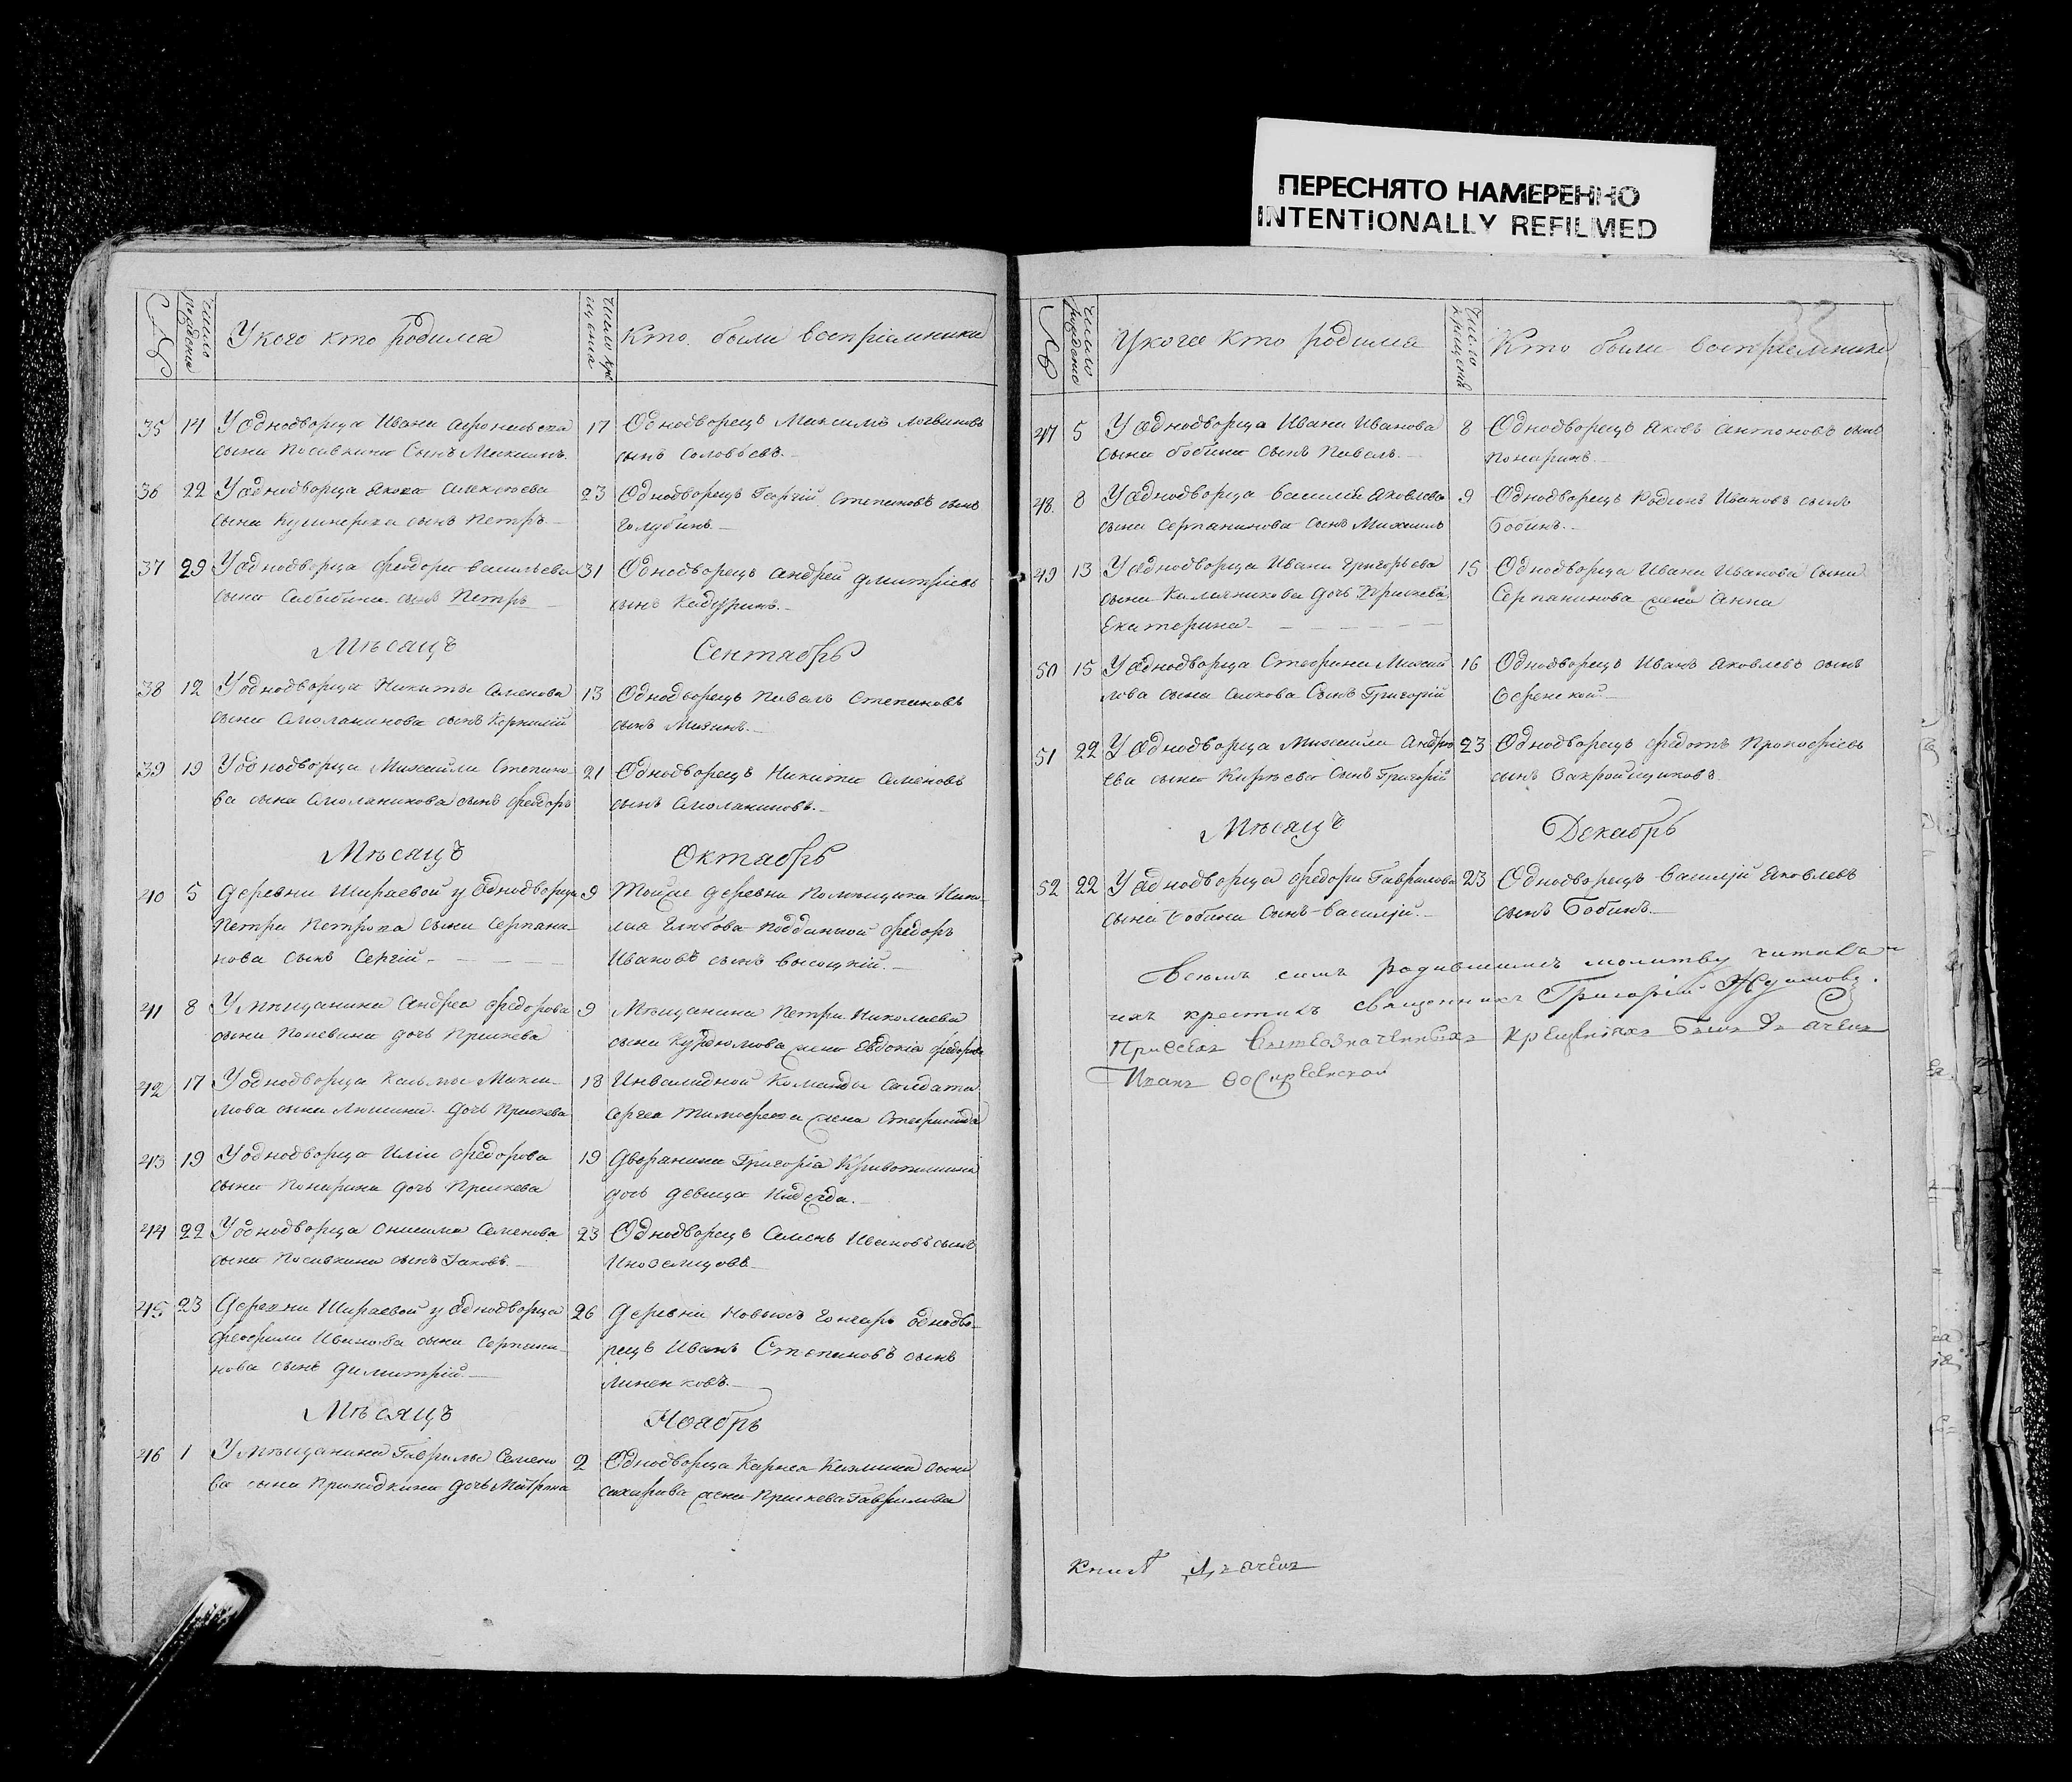 ПЕРЕСНЯТО НАМЕРЕННО
INTENTIONALLY REFILMED
№ Число рожденія У кого кто родился Число кре щенія Кто были воспріемники
35 14 У однодворца Ивана
сына Посивкина Сынъ Михаилъ
17 Однодворецъ Максимъ Логвиновъ
сынъ Соловьевъ.
36 22 У однодворца Якова Алексѣева
сына сынъ Петръ
23 Однодворецъ Георгій Степановъ сынъ
Голубинъ
37 29 У однодворца Федора Васильева
сына сынъ Петръ
31 Однодворецъ Андрей Дмитріевъ
сынъ
Мѣсяцъ Сентябрь
38 12 У однодворца Никиты Семенова
сына Смоланинова сынъ Корнилій
13 Однодворецъ Павелъ Степановъ
сынъ
39 19 У однодворца Михаила Степано-
ва сына Смоланинова сынъ Федоръ
21 Однодворецъ Никита Семеновъ
сынъ Смоланиновъ.
Мѣсяцъ Октябрь
40 5 Деревни Шираевой у Однодворца
Петра Петрова сына Серпани-
нова сынъ Сергій
9 Тойже деревни Помѣщика Нико-
лая подданной Федоръ
Ивановъ сынъ Высоцкій.
41 8 У Мѣщанина Андрея Федорова
сына Полевина дочь Праскева
9 Мѣщанина Петра Николаева
сына Курдюмова жена Евдокія Федорова
42 17 У однодворца Макси-
мова сына дочь Праскева
18 Инвалидной Команды Салдата
Сергея Тимофеева жена Стефанида
43 19 У однодворца Иліи Федорова
сына Понарина дочь Праскева
19 Дворянина Григорія
дочь девица Надежда.
44 22 У однодворца Онисима Семенова
сына Посивкина сынъ Іаковъ.
23 Однодворецъ Семенъ Ивановъ сынъ
Иноземцовъ
45 23 Деревни Шираевой у Однодворца
Феофила Иванова сына Серпани-
нова сынъ Димитрій
26 Деревни Новыхъ Гончаръ однодво-
рецъ Иванъ Степановъ сынъ
Линенковъ.
Мѣсяцъ Ноябрь
46 1 У Мѣщанина Гаврилы Семено
ва сына Приходкина дочь Матрона
2 Однодворца Карнея сына
Сахарова жена Праскева Гаврилова
№ Число рожденія У кого кто родился Число крещенія Кто были воспріемники
47 5 У однодворца Ивана Иванова
сына Бобина сынъ Павелъ
8 Однодворецъ Яковъ Антоновъ сынъ
Понаринъ
48 8 У однодворца Василія Яковлева
сына Серпанинова сынъ Михаилъ
9 Однодворецъ Родіонъ Ивановъ сынъ
Бобинъ.
49 13 У однодворца Ивана Григорьева
сына Калачникова дочь
Екатерина
15 Однодворца Ивана Иванова сына
Серпанинова жена Анна
50 15 У однодворца Стефана Михай
лова сына Сынъ Григорій
16 Однодворецъ Иванъ Яковлевъ сынъ
51 22 У однодворца Михаила Андре
ева сына Кирѣева Сынъ Григорій
23 Однодворецъ Федотъ Прокофіевъ
сынъ Закройщиковъ
Мѣсяцъ Декабрь
52 22 У однодворца Федора Гаврилова
сына Бобина сынъ Василій.
23 Однодворецъ Василій Яковлевъ
сынъ Бобинъ
Всемъ симъ родившимъ молитву читалъ и
ихъ крестилъ Священникъ Григорій
При всехъ вышеозначенныхъ крещеніяхъ былъ Дьячекъ
Иванъ